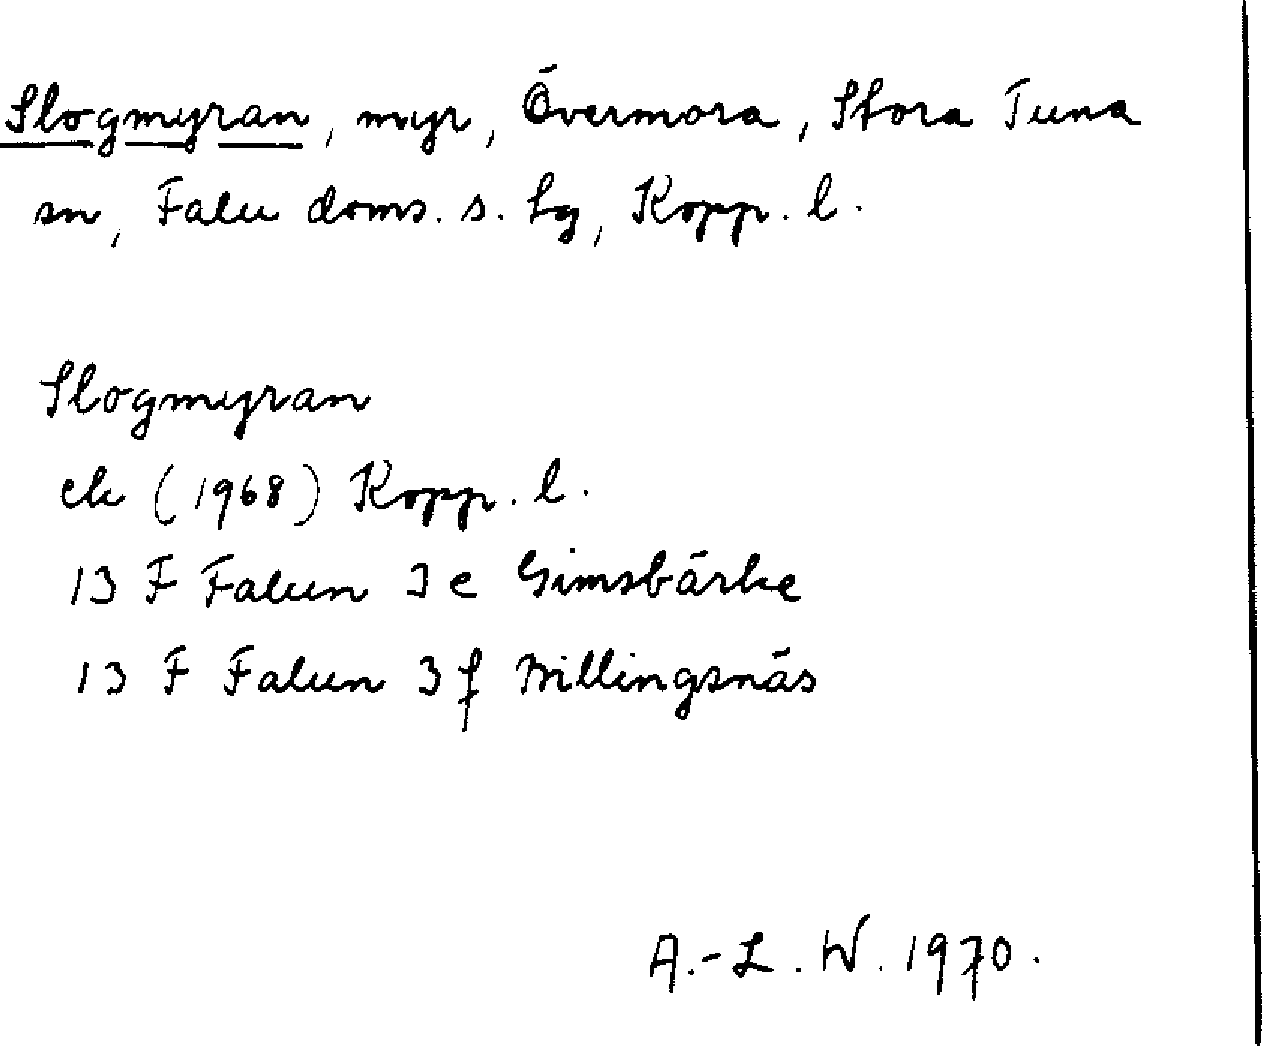 Slogmyran, myr, Övermora, Stora Tuna
sn, Falu doms. s. lg, Kopp. l.
Slogmyran
ek (1968) Kopp. l.
13 F Falun 3 e Gimsbärke
13 F Falun 3 f Millingsnäs
A.-L. W. 1970.